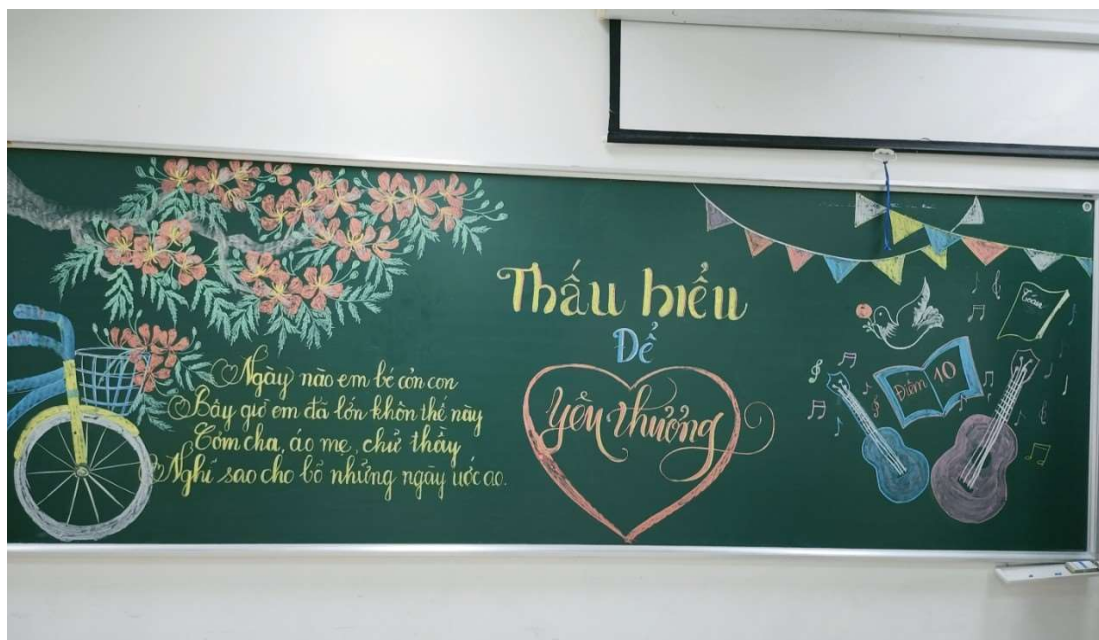 Ngày nào em bé cỏn con
Bây giờ em đã lớn khôn thế này
Cơm cha, áo mẹ, chữ thầy
Nghĩ sao cho bỏ những ngày ước ao.
Thấu hiểu
Để
yêu thương
Điểm 10
Toán